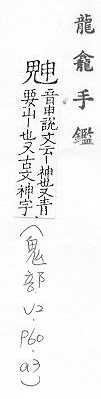 龍龕手鑑
䰠
音申說文云丨神也又青
要山丨也又古文神字
(鬼部.V2.P60.a3)